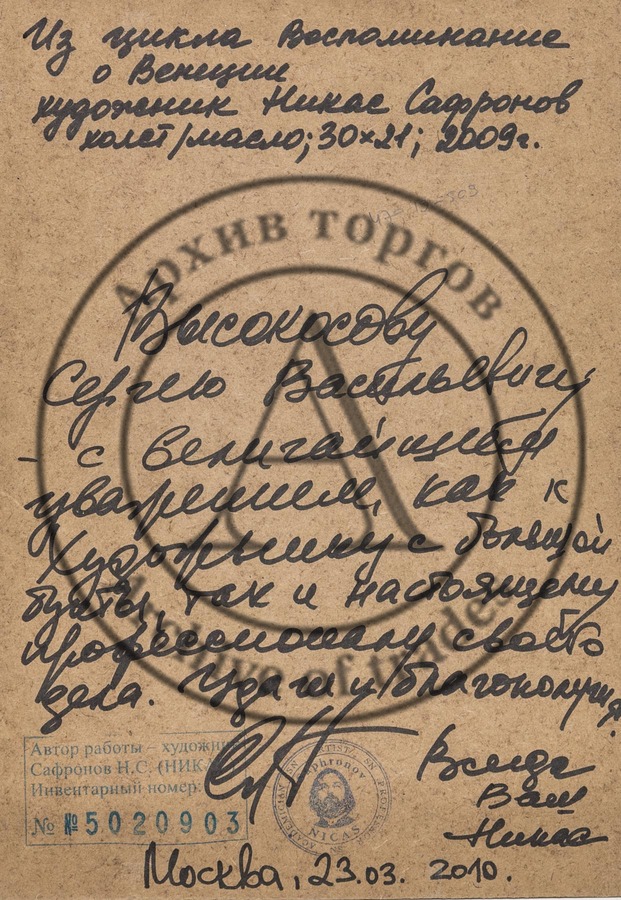 Из цикла Воспоминание
о Венеции
художник Никас Сафронов
холст/масло; 30×21; 2009г.
Архив торгов
A
Высокосову
Сергею Васильевичу
- с величайшим
уважением, как к
Художнику с большой
буквы, так и настоящему
профессионалу своего
дела. Удачи и благополучия.
Archive of trades
Автор работы – художник
Сафронов Н.С. (НИКА
Инвентарный номер:
№ №5020903
Saphronov
NICAS
Всегда
Ваш
Никас
Москва, 23.03. 2010.